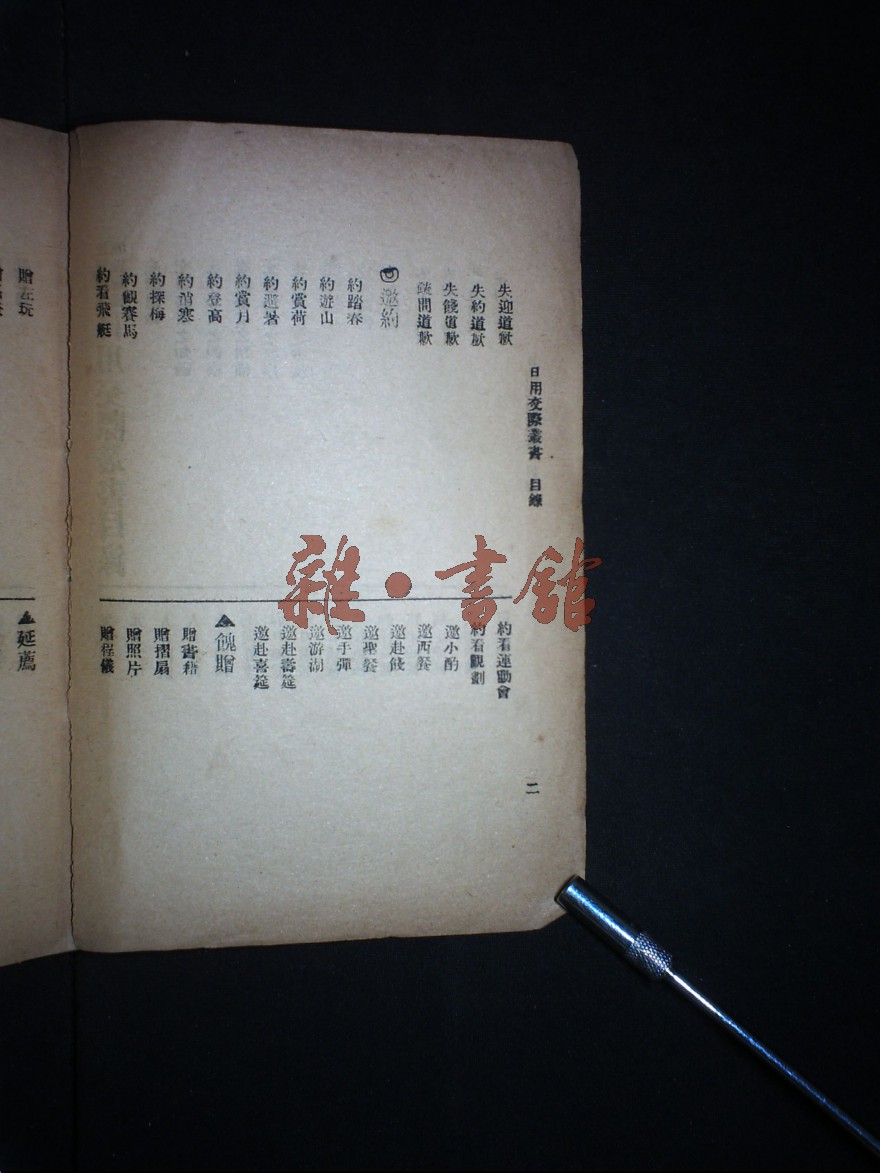 日用交際叢書 目錄
失迎道歉
失約道歉
失餞道歉
缺問道歉
邀約
約踏春
約遊山
約賞荷
約避暑
約賞月
約登高
約消寒
約探梅
約觀賽馬
約看飛艇
約看運動會
約看觀劇
邀小酌
邀西餐
邀赴餞
邀聖餐
邀手彈
邀游湖
邀赴壽筵
邀赴喜筵
餽贈
贈書籍
贈摺扇
贈照片
贈程儀
二
贈玩
延薦
雜·書館